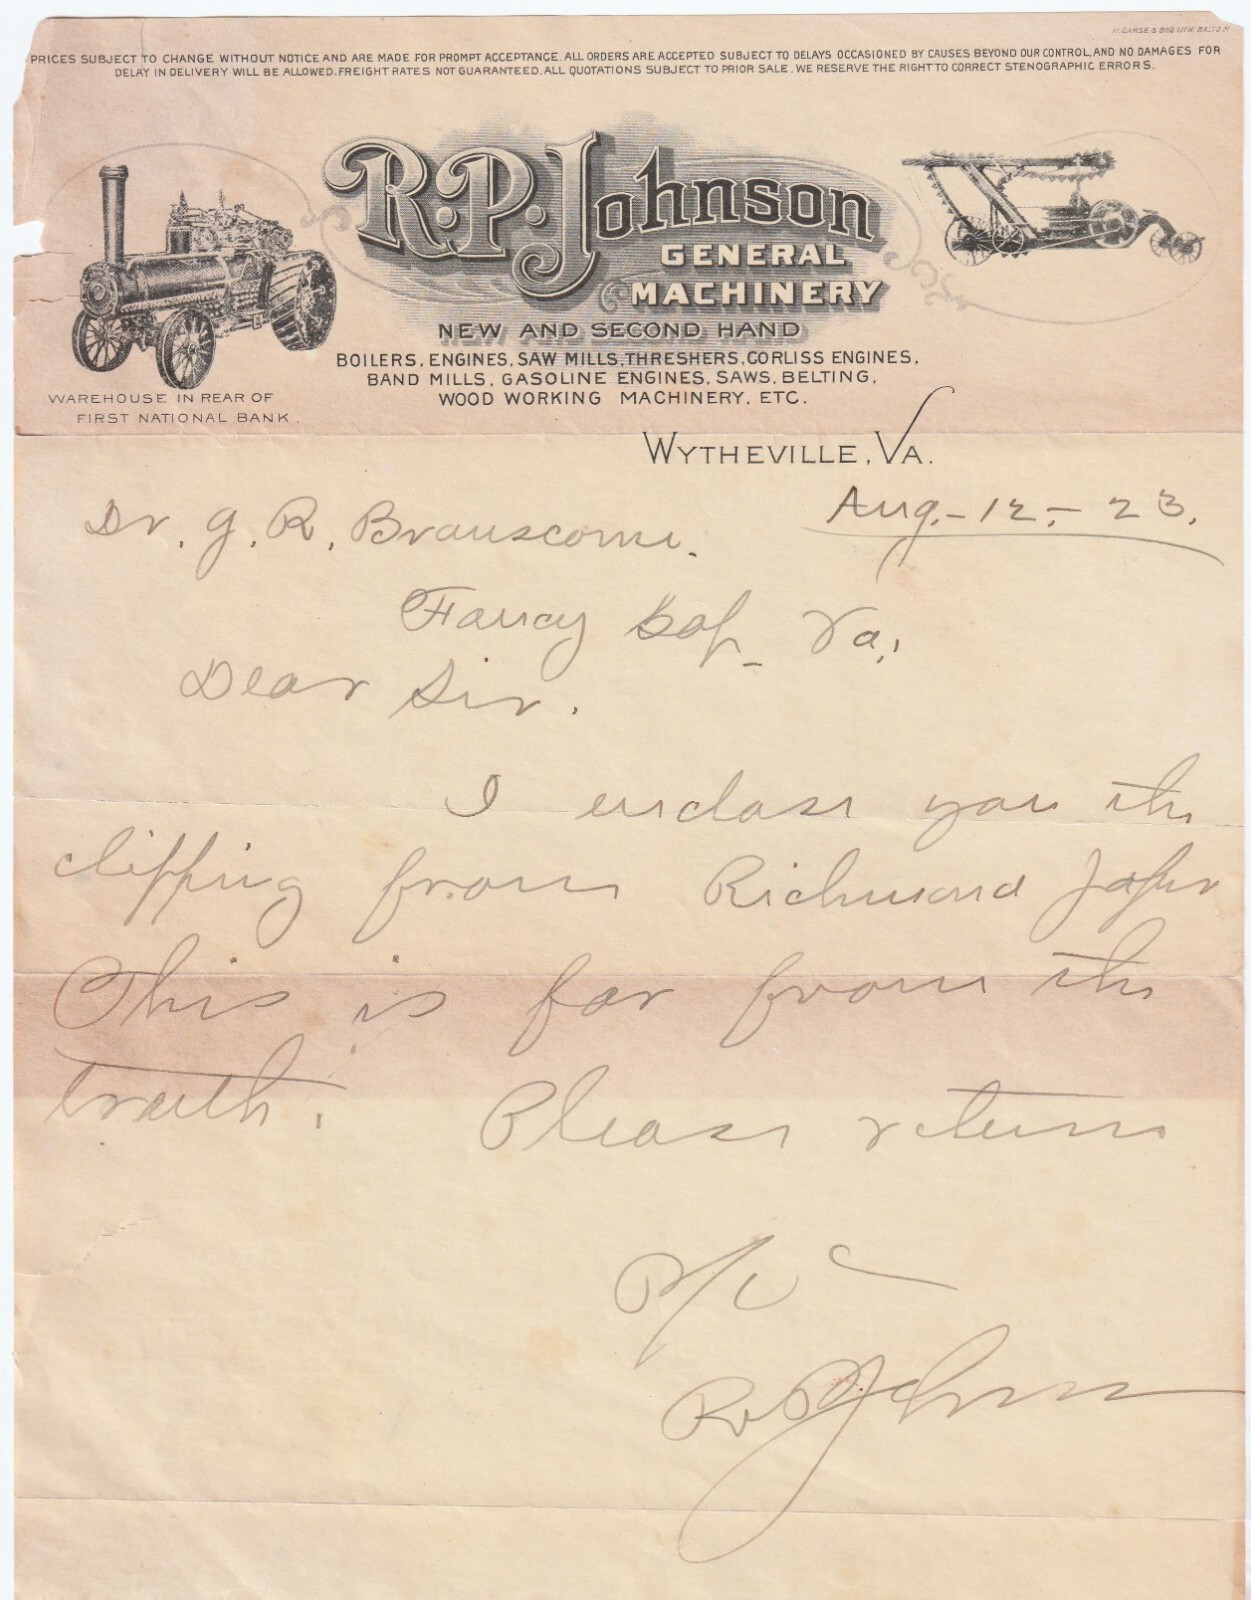 H. GAMSE & BRO. LITH. BALTO. M
PRICES SUBJECT TO CHANGE WITHOUT NOTICE AND ARE MADE FOR PROMPT ACCEPTANCE. ALL ORDERS ARE ACCEPTED SUBJECT TO DELAYS OCCASIONED BY CAUSES BEYOND OUR CONTROL, AND NO DAMAGES FOR
DELAY IN DELIVERY WILL BE ALLOWED. FREIGHT RATES NOT GUARANTEED. ALL QUOTATIONS SUBJECT TO PRIOR SALE. WE RESERVE THE RIGHT TO CORRECT STENOGRAPHIC ERRORS.
R. P. Johnson
GENERAL
MACHINERY
NEW AND SECOND HAND
BOILERS, ENGINES, SAW MILLS, THRESHERS, CORLISS ENGINES,
BAND MILLS, GASOLINE ENGINES, SAWS, BELTING,
WOOD WORKING MACHINERY, ETC.
WAREHOUSE IN REAR OF
FIRST NATIONAL BANK.
WYTHEVILLE, VA.
Aug.-12,- 23.
Dr. G. R. Branscome.
Fancy Gap Va.,
Dear Sir.
I enclose you the
clipping from Richmond paper
This is far from the
truth. Please return
R P Johnson